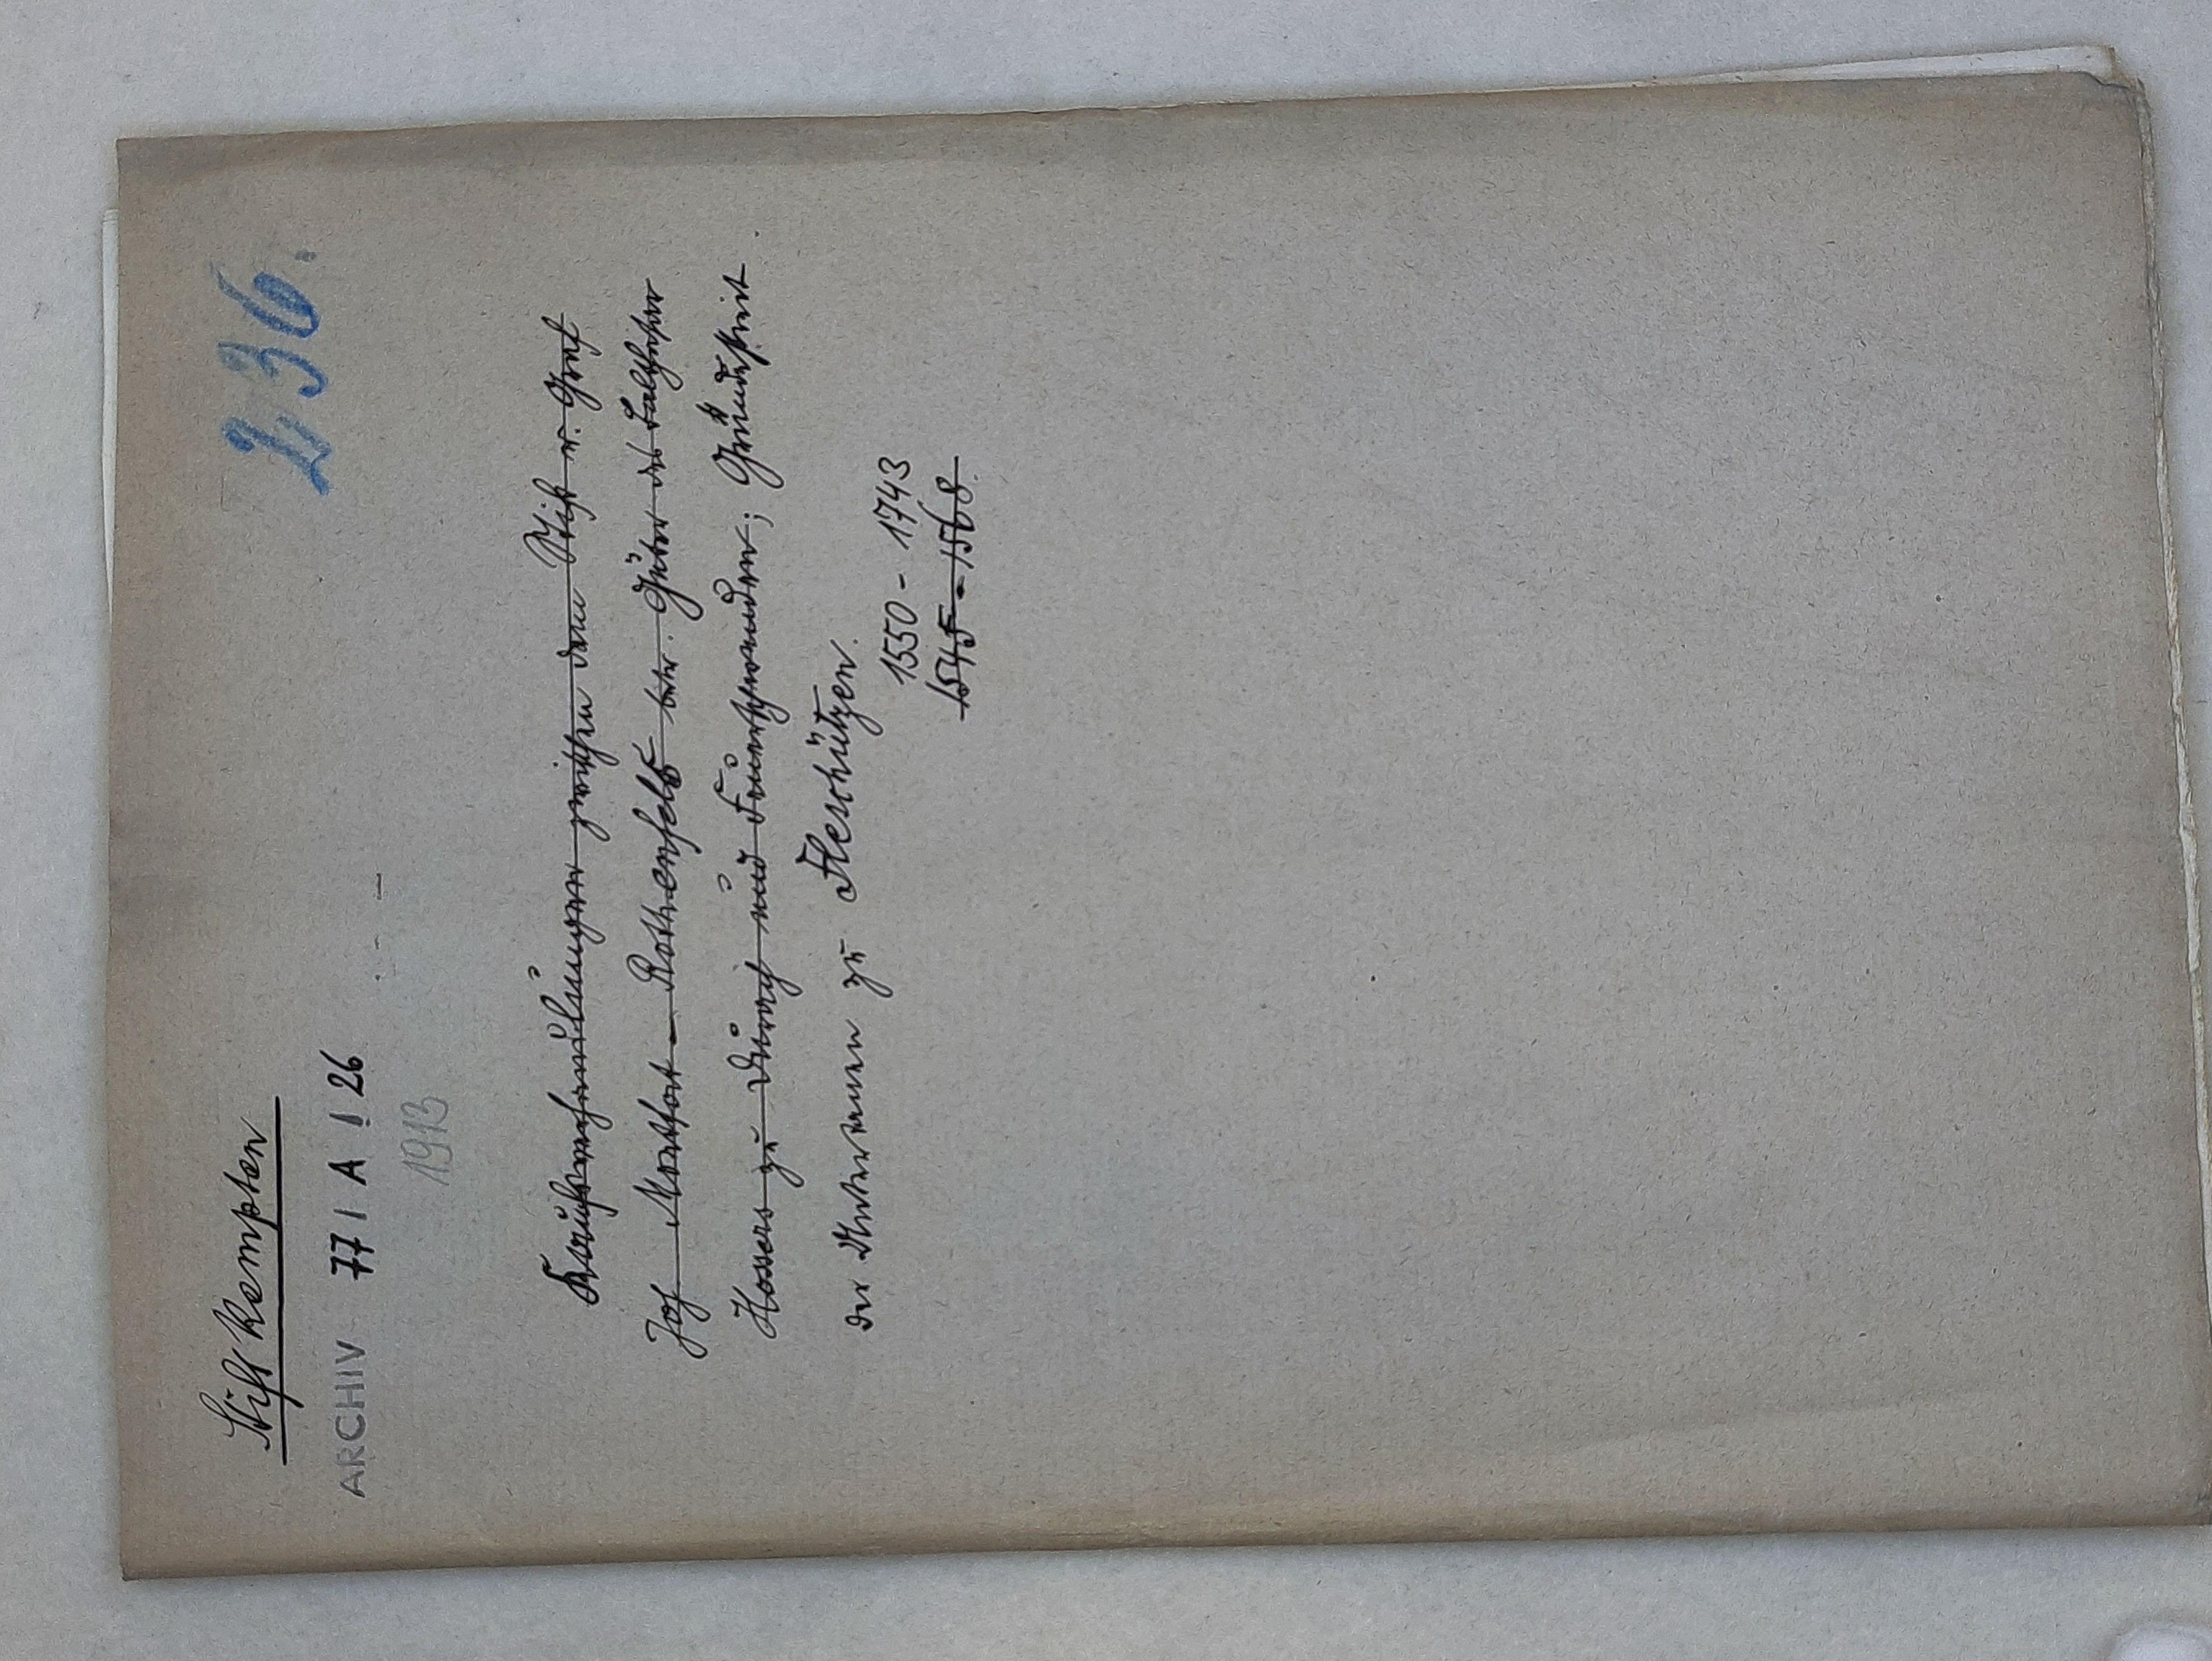 Stift Kempten
236.
ARCHIV 77 / A / 26
1913
Kaufsverhandlungen zwischen dem Stift u. Graf
Joh. Montfort - Rothenfels betr. Güter des Balthasar
Hossers zu Durach und Feuerschwenden; Gründestreit
der Untertanen zu Fleschützen.
1550 - 1743
1545 - 1568.